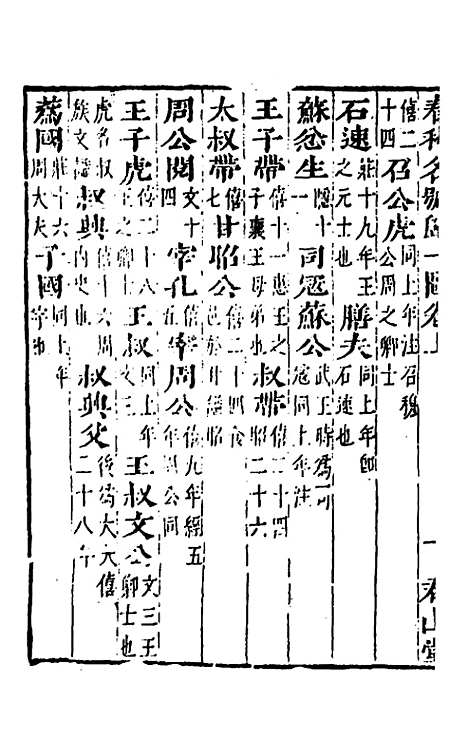 春秋名號歸一圖卷上 一
僖二十四 召公虎 同上年注召穆公周之卿士
石速 莊十九年王之元士也 膳夫 同上年即石速也
蘇忿生 隱十一 司寇蘇公 武王時為司寇同上年注
王子帶 僖十一惠王之子襄王母弟也 叔帶 僖二十四昭二十六
太叔帶 僖七 甘昭公 僖二十四食邑於甘謚昭
周公閱 文十四 宰孔 宰周公 僖九年經五年周公同
王子虎 僖二十八王之卿士 王叔 同上年文三 王叔文公 文三王卿士也
虎名叔族文謚 叔興 僖十六周內史也 叔興父 後為大夫僖二十八年
蔿國 莊十六周大夫 子國 同上年字也